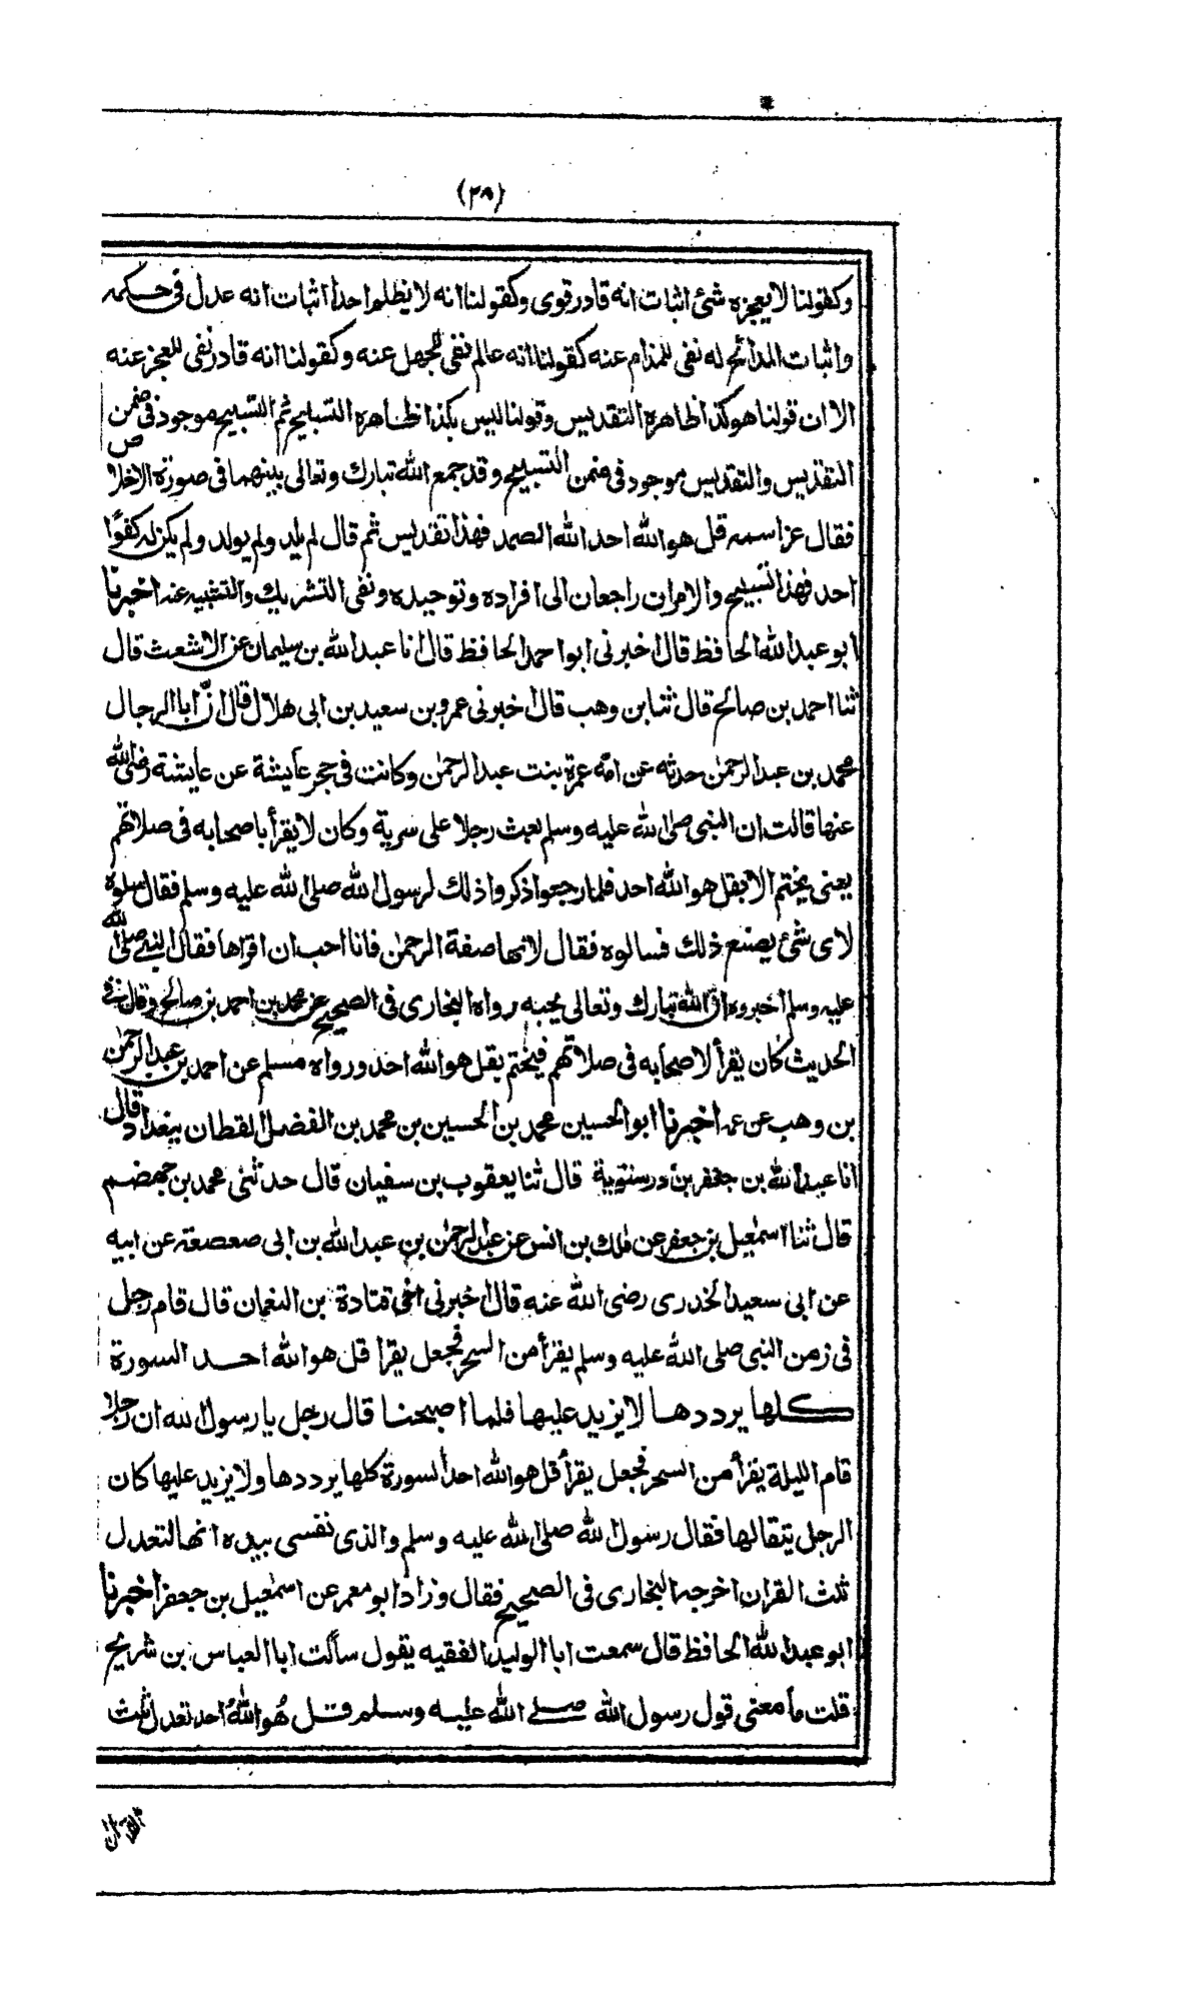 (٢٨)
وكقولنا لا يعجزه شئ اثبات انه قادر قوى وكقولنا انه لا يظلم احدا اثبات انه عدل فى حكمه
واثبات المدائح له نفى للمذام عنه كقولنا انه عالم نفى للجهل عنه وكقولنا انه قادر نفى للعجز عنه
الا ان قولنا هو كذا ظاهره التقديس وقولنا ليس بكذا ظاهره التسبيح ثم التسبيح موجود فى ضمن
التقديس والتقديس موجود فى ضمن التسبيح وقد جمع الله تبارك وتعالى بينهما فى صورة الاخلاص
فقال عز اسمه قل هو الله احد الله الصمد فهذا تقديس ثم قال لم يلد ولم يولد ولم يكن له كفوًا
احد فهذا تسبيح والامران راجعان الى افراده وتوحيده ونفى التشريك والتشبيه عنه اخبرنا
ابو عبد الله الحافظ قال اخبرنى ابو احمد الحافظ قال انا عبد الله بن سليمان عن الاشعث قال
ثنا احمد بن صالح قال ثنا بن وهب قال اخبرنى عمرو بن سعيد بن ابى هلال قال انّ ابا الرجال
محمد بن عبد الرحمٰن حدثه عن امّه عمرة بنت عبد الرحمٰن وكانت فى حجر عايشة عن عايشة رضى الله
عنها قالت ان النبى صلى الله عليه وسلم بعث رجلا على سرية وكان لا يقرأ باصحابه فى صلاتهم
يعنى يختم الا بقل هو الله احد فلما رجعوا ذكروا ذلك لرسول الله صلى الله عليه وسلم فقال سلوه
لاى شئ يصنع ذلك فسالوه فقال لانها صفة الرحمٰن فانا احب ان اقراها فقال النبى صلى الله
عليه وسلم اخبروه ان الله تبارك وتعالى يحبه رواه البخارى فى الصحيح عن محمد بن احمد بن صالح وقال فى
الحديث كان يقرأ لاصحابه فى صلاتهم فيختم بقل هو الله احد ورواه مسلم عن احمد بن عبد الرحمٰن
بن وهب عن عمه اخبرنا ابو الحسين محمد بن الحسين بن محمد بن الفضل القطان ببغداد قال
انا عبد الله بن جعفر بن درستوية قال ثنا يعقوب بن سفيان قال حدثنى محمد بن جهضم
قال ثنا اسمٰعيل بن جعفر عن مٰلك بن انس عن عبد الرحمٰن بن عبد الله بن ابى صعصعة عن ابيه
عن ابى سعيد الخدرى رضى الله عنه قال اخبرنى اخى قتادة بن النعمان قال قام رجل
فى زمن النبى صلى الله عليه وسلم يقرأ من السحر فجعل يقرا قل هو الله احد السورة
كلها يرددها لا يزيد عليها فلما اصبحنا قال رجل يا رسول الله ان رجلا
قام الليلة يقرأ من السحر فجعل يقرأ قل هو الله احد السورة كلها يرددها ولا يزيد عليها كان
الرجل يتقالها فقال رسول الله صلى الله عليه وسلم والذى نفسى بيده انها لتعدل
ثلث القران اخرجه البخارى فى الصحيح فقال وزاد ابو معمر عن اسمٰعيل بن جعفر اخبرنا
ابو عبد الله الحافظ قال سمعت ابا الوليد الفقيه يقول سألت ابا العباس بن شريح
قلت ما معنى قول رسول الله صلے الله عليه وسلم قل هُو اللهُ احد تعدل ثلث
القرآن